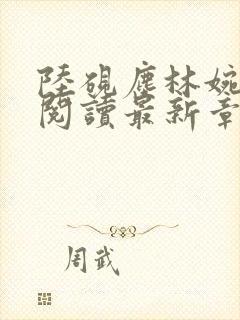 陸硯塵林婉
閱讀最新章
周武